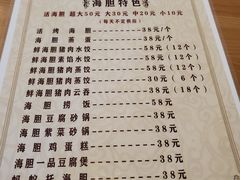 海胆特色
活海胆 超大50元 大30元 中20元 小10元
（每天不定供应）
活烤海胆 38元/个
海胆蒸蛋 38元/个
鲜海胆猪肉水饺 58元（12个）
鲜海胆素馅水饺 58元（12个）
鲜海胆猪肉蒸饺 38元（6个）
鲜海胆猪肉蒸饺 58元（12个）
鲜海胆猪肉云吞 38元（18个）
海胆捞饭 38元
海胆豆腐砂锅 38元
海胆紫菜砂锅 38元
海胆鸡蛋糕 38元
海胆一品豆腐煲 38元
托海胆 38元